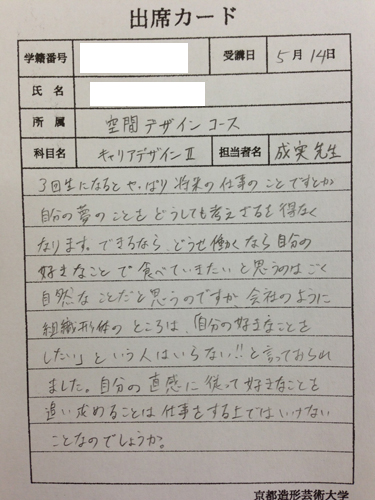 出席カード
学籍番号
受講日 5月14日
氏名
所属 空間デザインコース
科目名 キャリアデザインⅡ 担当者名 成実先生
3回生になるとやっぱり将来の仕事のことですとか
自分の夢のことをどうしても考えざるを得なく
なります。できるなら、どうせ働くなら自分の
好きなことで食べていきたいと思うのはごく
自然なことだと思うのですが、会社のように
組織形体のところは、「自分の好きなことを
したい」という人はいらない!!と言っておられ
ました。自分の直感に従って好きなことを
追い求めることは仕事をする上ではいけない
ことなのでしょうか。
京都造形芸術大学